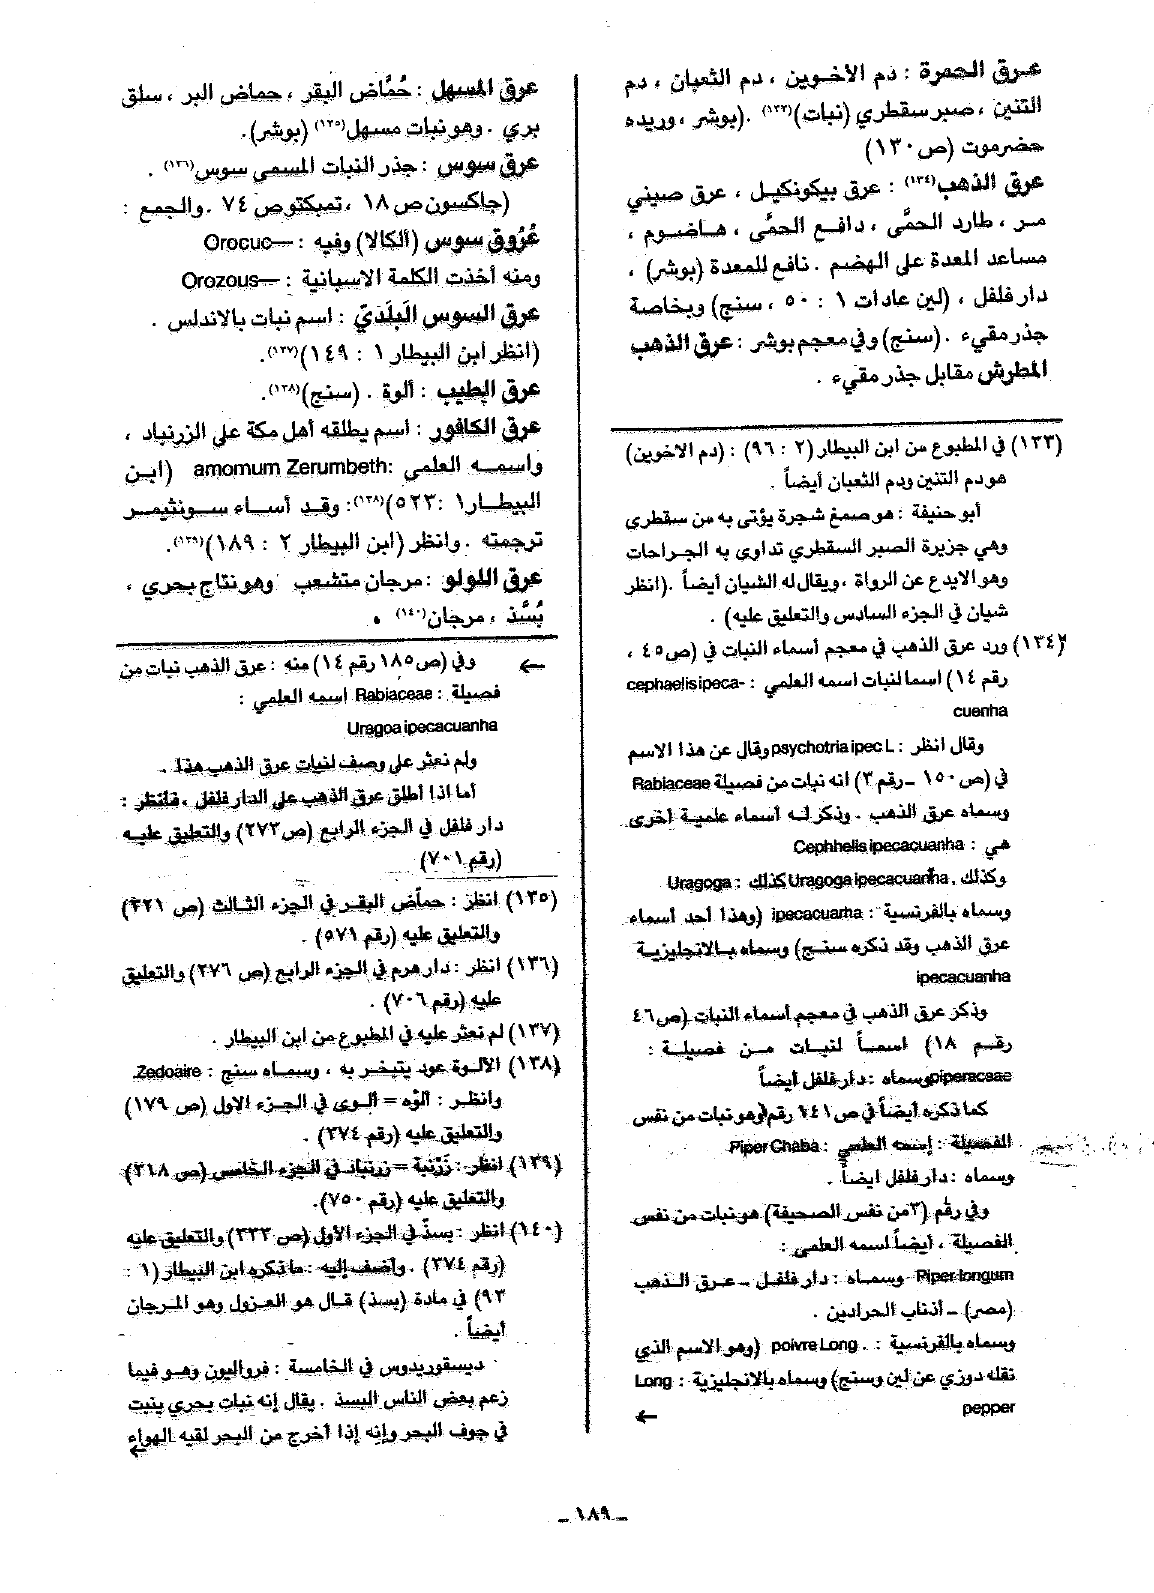 عرق الحمرة : دم الاخوين ، دم الثعبان ، دم
التنين ، صبر سقطري (نبات)(١٣٣) .(بوشر ، وريده
حضرموت (ص١٣٠)
عرق الذهب(١٣٤) : عرق بيكونكيل ، عرق صيني
مر ، طارد الحمَّى ، دافع الحمَّى ، هاضوم ،
مساعد المعدة على الهضم . نافع للمعدة (بوشر) ،
دار فلفل ، (لين عادات ١ : ٥٠ ، سنج) وبخاصة
جذر مقيء . (سنج) وفي معجم بوشر : عرق الذهب
المطرش مقابل جذر مقيء .
(١٣٣) في المطبوع من ابن البيطار (٢ : ٩٦) : (دم الاخوين)
هو دم التنين ودم الثعبان أيضاً .
أبو حنيفة : هو صمغ شجرة يؤتى به من سقطري
وهي جزيرة الصبر السقطري تداوى به الجراحات
وهو الايدع عن الرواة ، ويقال له الشيان أيضاً .(انظر
شيان في الجزء السادس والتعليق عليه) .
(١٣٤) ورد عرق الذهب في معجم أسماء النبات في (ص٤٥ ،
رقم ١٤) اسما لنبات اسمه العلمي : cephaelis ipeca-
cuenha
وقال انظر : psychotria ipec L وقال عن هذا الاسم
في (ص ١٥٠ - رقم ٣) انه نبات من فصيلة Rabiaceae
وسماه عرق الذهب . وذكر لـه أسماء علمية أخرى
هي : Cephhelis ipecacuanha
وكذلك ,Uragoga ipecacuanha كذلك : Uragoga
وسماه بالفرنسية : ipecacuarha (وهذا أحد أسماء
عرق الذهب وقد ذكره سنج) وسماه بالانجليزية
ipecacuanha
وذكر عرق الذهب في معجم أسماء النبات (ص٤٦
رقم ١٨) اسماً لنبات من فصيلة :
piperacsae وسماه : دار فلفل أيضاً
كما ذكره أيضاً في ص١٤١ رقم وهو نبات من نفس
الفصيلة : إسمه العلمي : Piper Chaba
وسماه : دار فلفل ايضاً .
وفي رقم (٣من نفس الصحيفة) هو نبات من نفس
الفصيلة ، أيضاً اسمه العلمي :
Piper longum وسماه : دار فلفل - عرق الذهب
(مصر) - أذناب الحرادين .
وسماه بالفرنسية : .poivre Long (وهو الاسم الذي
نقله دوزي عن لين وسنج) وسماه بالانجليزية : Long
pepper ←
عرق المسهل : حُمَّاض البقر ، حماض البر ، سلق
بري . وهو نبات مسهل(١٣٥) (بوشر).
عرق سوس : جذر النبات المسمى سوس(١٣٦) .
(جاكسون ص١٨ ، تمبكتو ص ٧٤ . والجمع :
عُرُوق سوس (ألكالا) وفيه : Orocuc—
ومنه أخذت الكلمة الاسبانية : Orozous—
عرق السوس البَلَديّ : اسم نبات بالاندلس .
(انظر ابن البيطار ١ : ١٤٩)(١٣٧).
عرق الطيب : ألوة . (سنج)(١٣٨).
عرق الكافور : اسم يطلقه أهل مكة على الزرنباد ،
واسمه العلمي :amomum Zerumbeth (ابن
البيطار١ : ٥٢٣)(١٣٨): وقد أساء سونثيمر
ترجمته . وانظر (ابن البيطار ٢ : ١٨٩)(١٣٩).
عرق اللولو : مرجان متشعب وهو نتاج بحري ،
بُسَّذ ، مرجان(١٤٠) .
← وفي (ص١٨٥ رقم ١٤) منه : عرق الذهب نبات من
فصيلة : Rabiaceae اسمه العلمي :
Uragoa ipecacuanha
ولم نعثر على وصف لنبات عرق الذهب هذا .
أما اذا أطلق عرق الذهب على الدار فلفل ، فانتظر :
دار فلفل في الجزء الرابع (ص ٢٧٣) والتعليق عليه
(رقم ٧٠١)
(١٣٥) انظر : حماّض البقر في الجزء الثالث (ص ٣٢١)
والتعليق عليه (رقم ٥٧١) .
(١٣٦) انظر : دار هرم في الجزء الرابع (ص ٢٧٦) والتعليق
عليه (رقم ٧٠٦) .
(١٣٧) لم نعثر عليه في المطبوع من ابن البيطار .
(١٣٨) الألوة عود يتبخر به ، وسماه سنج : Zedoaire.
وانظر : ألوُه = ألوى في الجزء الاول (ص ١٧٩)
والتعليق عليه (رقم ٢٧٤) .
(١٣٩) انظر : زَرْنبَة = زرنباد في الجزء الخامس (ص ٣١٨)
والتعليق عليه (رقم ٧٥٠).
(١٤٠) انظر : بسذّ في الجزء الأول (ص ٣٣٣) والتعليق عليه
(رقم ٣٧٤) . وأضف إليه : ما ذكره ابن البيطار (١ :
٩٣) في مادة (بسذ) قال هو العزول وهو المرجان
أيضاً .
ديسقوريدوس في الخامسة : فرواليون وهو فيما
زعم بعض الناس البسذ . يقال إنه نبات بحري ينبت
في جوف البحر وإنه إذا أخرج من البحر لقيه الهواء
←
ـ ١٨٩ ـ